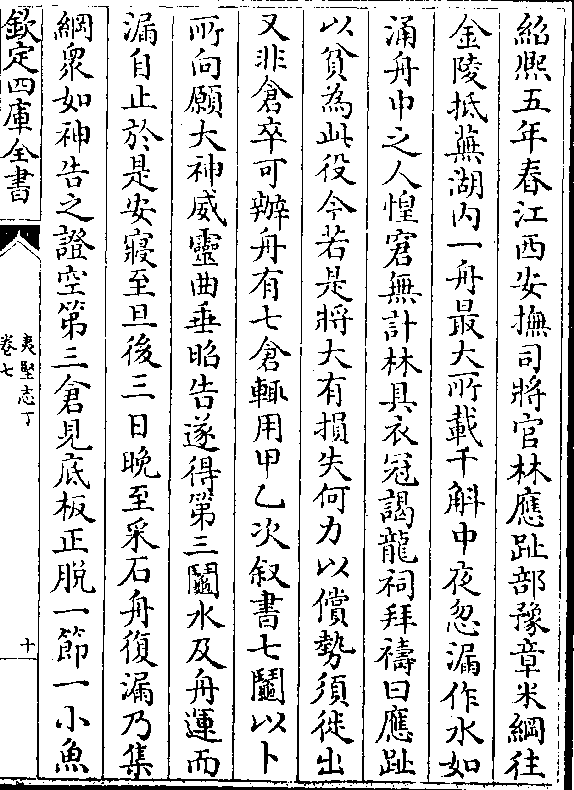 紹熙五年春江西安撫司將官林應趾部豫章米綱往
金陵抵蕪湖内一舟最大所載千斛中夜忽漏作水如
涌舟中之人惶窘無計林具衣冠謁龍祠拜禱曰應趾
以貧為此役今若是將大有損失何力以償勢須徙出
又非倉卒可辦舟有七倉輒用甲乙次叙書七鬮以卜
所向願大神威靈曲垂昭告遂得第三鬮水及舟運而
漏自止於是安寢至旦後三日晚至采石舟復漏乃集
綱衆如神告之證空第三倉見底板正脱一節一小魚
欽定四庫全書
夷堅志丁
卷七
十